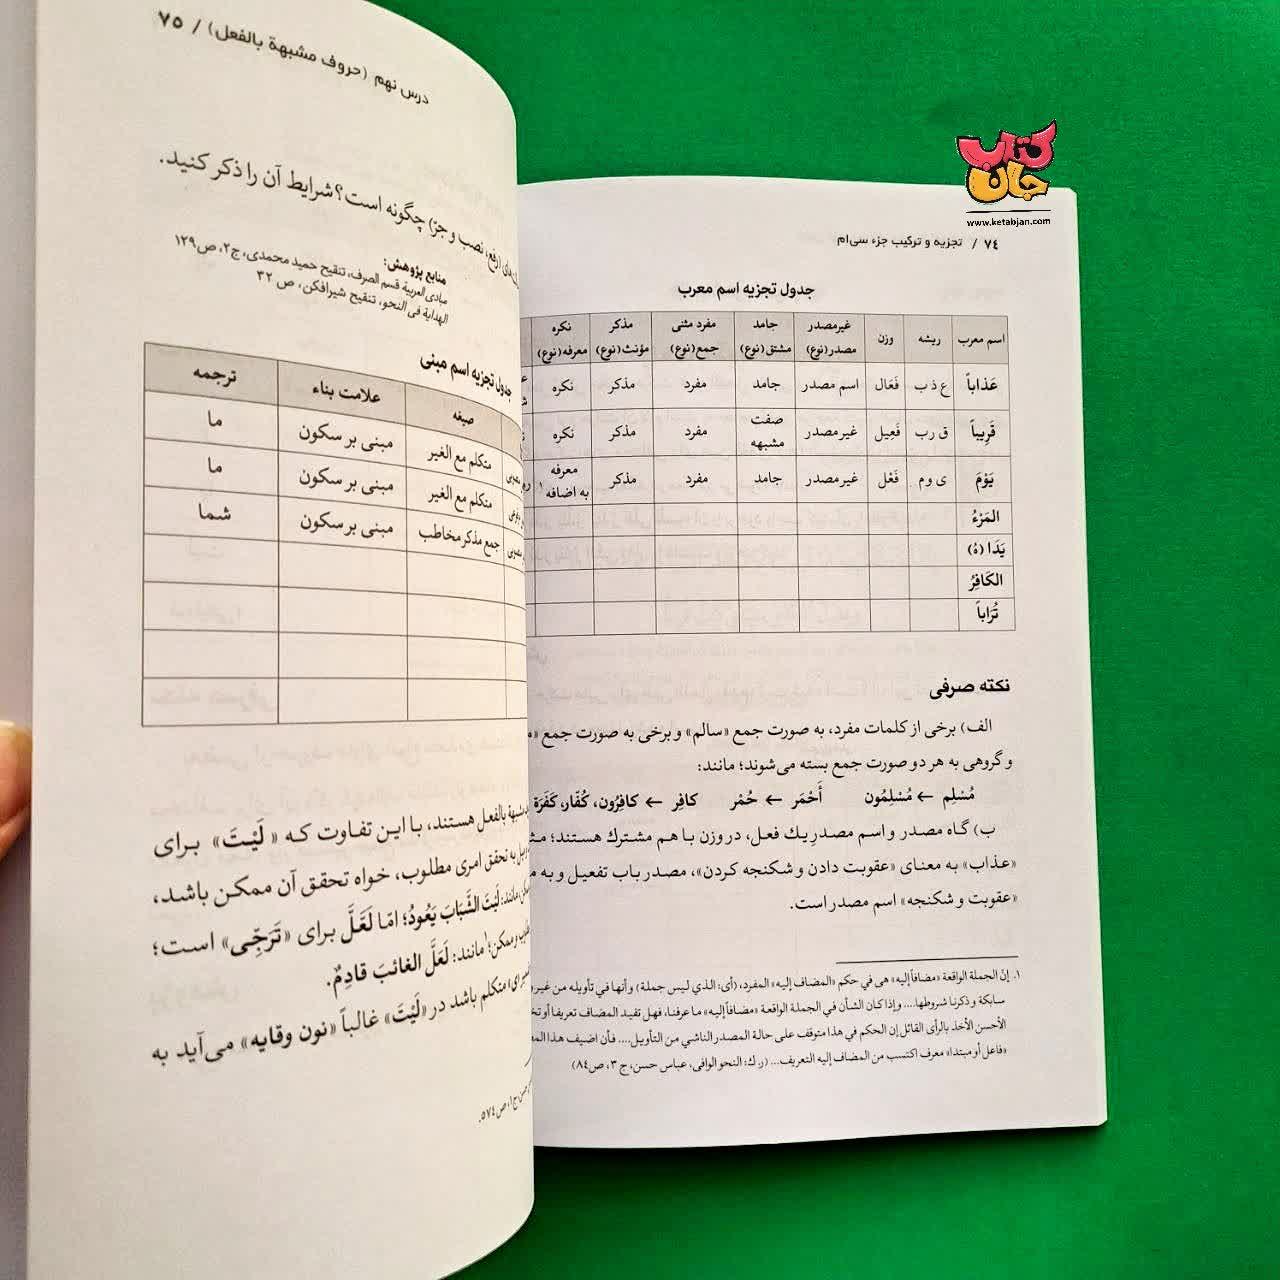 کتاب جان
www.ketabjan.com
٧٤ / تجزیه و ترکیب جزء سی‌ام
جدول تجزیه اسم معرب
اسم معرب ریشه وزن غیرمصدر مصدر(نوع) جامد مشتق(نوع) مفرد مثنی جمع(نوع) مذکر مؤنث(نوع) نکره معرفه(نوع)
عَذاباً ع ذ ب فَعَال اسم مصدر جامد مفرد مذکر نکره
قَرِیباً ق ر ب فَعِیل غیرمصدر صفت مشبهه مفرد مذکر نکره
یَوْمَ ی و م فَعْل غیرمصدر جامد مفرد مذکر معرفه به اضافه١
المَرْءُ
یَدَا (هُ)
الکَافِرُ
تُرَاباً
نکته صرفی
الف) برخی از کلمات مفرد، به صورت جمع «سالم» و برخی به صورت جمع
و گروهی به هر دو صورت جمع بسته می‌شوند؛ مانند:
مُسْلِم ← مُسْلِمُون أَحْمَر ← حُمْر کافِر ← کافِرُون، کُفّار، کَفَرَة
ب) گاه مصدر و اسم مصدرِ یک فعل، در وزن با هم مشترک هستند؛
«عذاب» به معنای «عقوبت دادن و شکنجه کردن»، مصدر باب تفعیل و به
«عقوبت و شکنجه» اسم مصدر است.
١. إنّ الجملة الواقعة «مضافاً إلیه» هی فی حکم «المضاف إلیه» المفرد، (أی: الذی لیس جملة) وأنها فی تأویله من غیر
سابکة و ذکرنا شروطها.... وإذا کان الشأن فی الجملة الواقعة «مضافاً إلیه» ما عرفنا، فهل تفید المضاف تعریفاً أو
الأحسن الأخذ بالرأی القائل إن الحکم فی هذا متوقف علی حالة المصدر الناشی من التأویل.... فأن اضیف هذا
«فاعل أو مبتدا» معرف اکتسب من المضاف إلیه التعریف... (ر.ک: النحو الوافی، عباس حسن، ج ٣، ص٨٤)
درس نهم (حروف مشبهة بالفعل) / ٧٥
(رفع، نصب و جرّ) چگونه است؟ شرایط آن را ذکر کنید.
منابع پژوهش:
مبادی العربیة قسم الصرف، تنقیح حمید محمدی، ج٢، ص١٢٩
الهدایة فی النحو، تنقیح شیرافکن، ص ٣٢
جدول تجزیه اسم مبنی
صیغه علامت بناء ترجمه
متکلم مع الغیر مبنی بر سکون ما
متکلم مع الغیر مبنی بر سکون ما
جمع مذکر مخاطب مبنی بر سکون شما
بالفعل هستند، با این تفاوت که «لَیْتَ» برای
به تحقق امری مطلوب، خواه تحقق آن ممکن باشد،
مانند: لَیْتَ الشَّبَابَ یَعُودُ؛ امّا لَعَلَّ برای «تَرَجِّی» است؛
مانند: لَعَلَّ الغائبَ قادِمٌ.
متکلم باشد در «لَیْتَ» غالباً «نون وقایه» می‌آید به
ص٥٧٤.